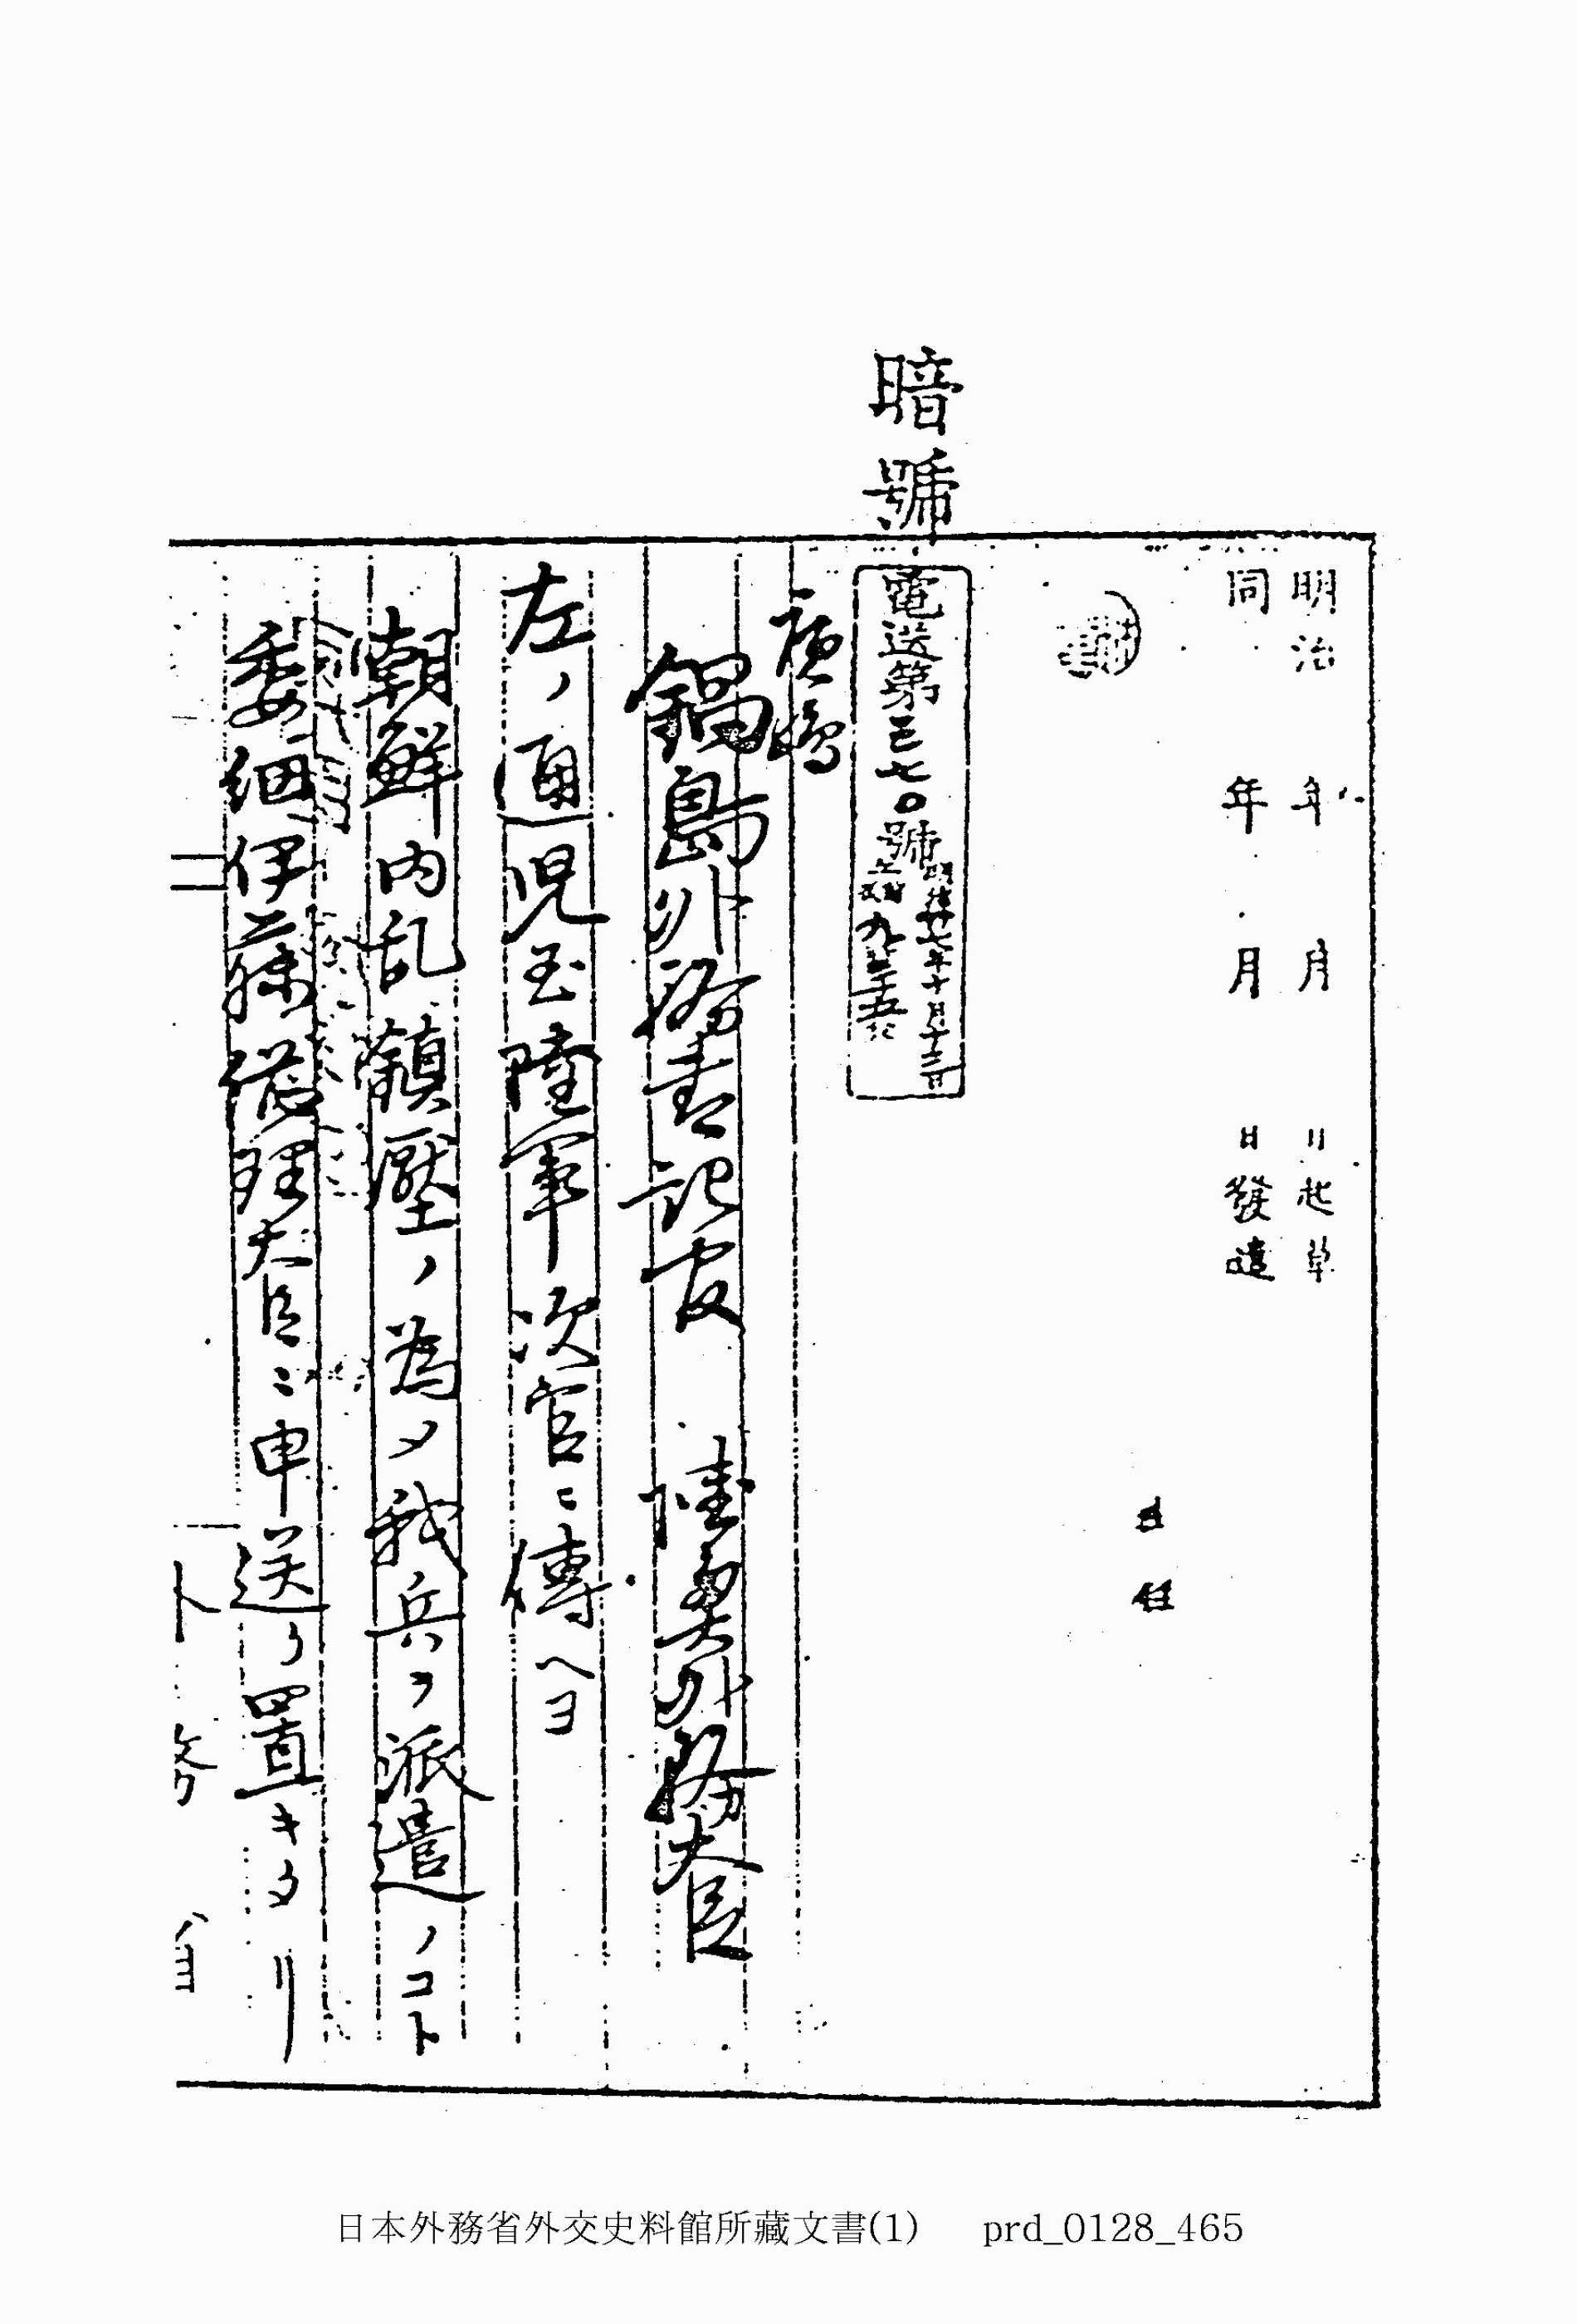 暗號
明治 年 月 日起草
同 年 月 日發遣
主任
電送第三七〇號
明治廿七年十月十三日
九時十五分
廣嶋
鍋島外務書記官 陸奧外務大臣
左ノ通児玉陸軍次官ニ傳ヘヨ
朝鮮内乱鎮壓ノ為メ我兵ヲ派遣ノコト
委細伊藤總理大臣ニ申送リ置キタリ
外務省
日本外務省外交史料館所藏文書(1) prd_0128_465